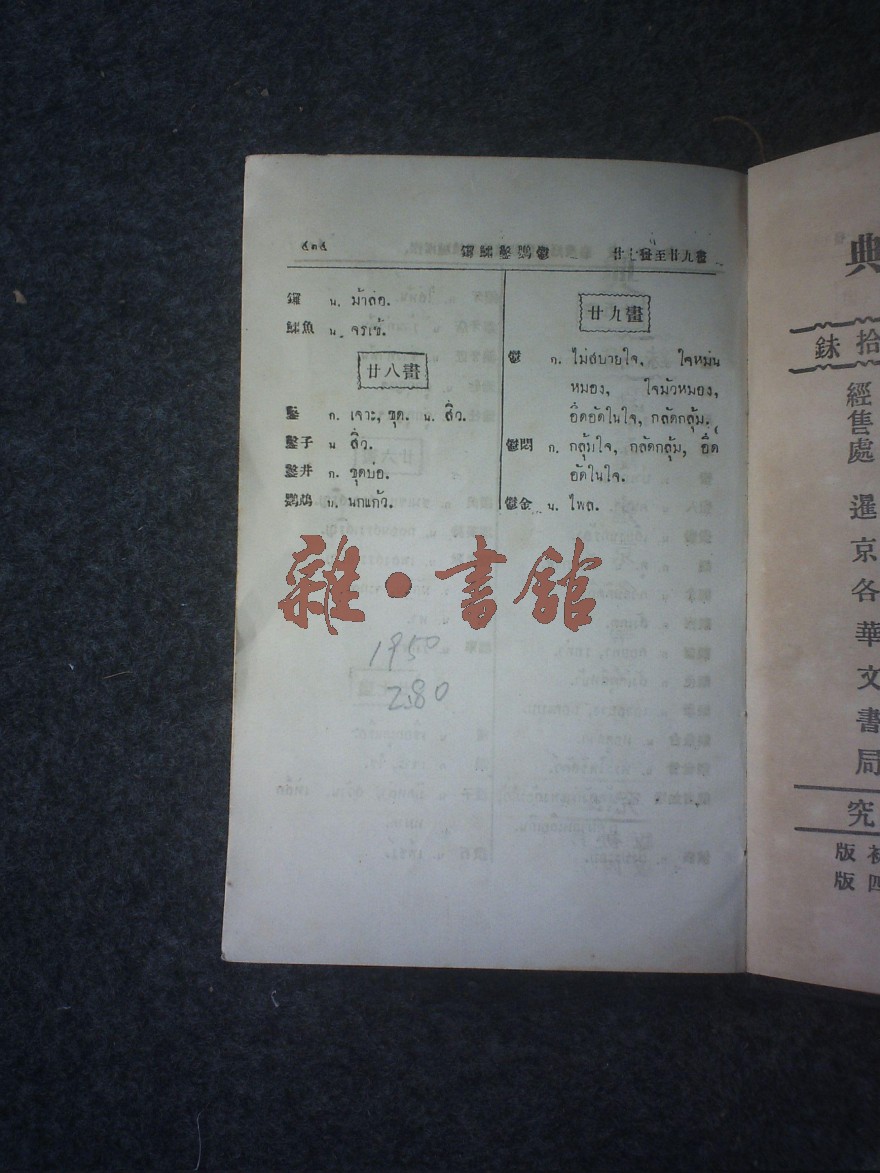 ๕๓๕ 鑼鱷鑿鸚鬱 廿七畫至廿九畫
น. ม้าล่อ.
魚 น. จรเข้.
廿八畫
鑿 ก. เจาะ, ขุด. น. สิ่ว.
鑿子 น สิ่ว.
鑿井 ก. ขุดบ่อ.
鸚鵡 น. นกแก้ว.
廿九畫
鬱 ก. ไม่สบายใจ, ใจหม่น
หมอง, ใจมัวหมอง,
อึดอัดในใจ, กลัดกลุ้ม.
鬱悶 ก. กลุ้มใจ, กลัดกลุ้ม, อึด
อัดในใจ.
鬱金 น. ไพล.
雜·書館
1950
280
典
拾
銖
經售處 暹京各華文書局
究
初版
四版